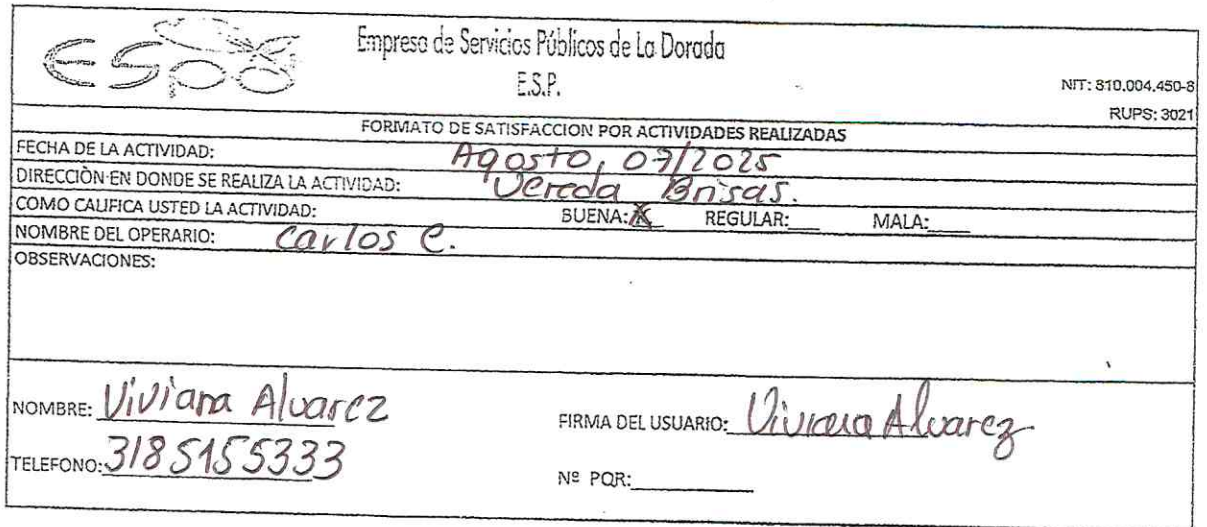 ESPD
Empresa de Servicios Públicos de La Dorada
E.S.P.
NIT: 810.004.450-8
RUPS: 3021
FORMATO DE SATISFACCION POR ACTIVIDADES REALIZADAS
FECHA DE LA ACTIVIDAD: Agosto, 07/2025
DIRECCIÒN EN DONDE SE REALIZA LA ACTIVIDAD: Vereda Brisas.
COMO CALIFICA USTED LA ACTIVIDAD: BUENA: X REGULAR:___ MALA:____
NOMBRE DEL OPERARIO: Carlos C.
OBSERVACIONES:
NOMBRE: Viviana Alvarez FIRMA DEL USUARIO: Viviana Alvarez
TELEFONO: 3185155333 Nº PQR:__________